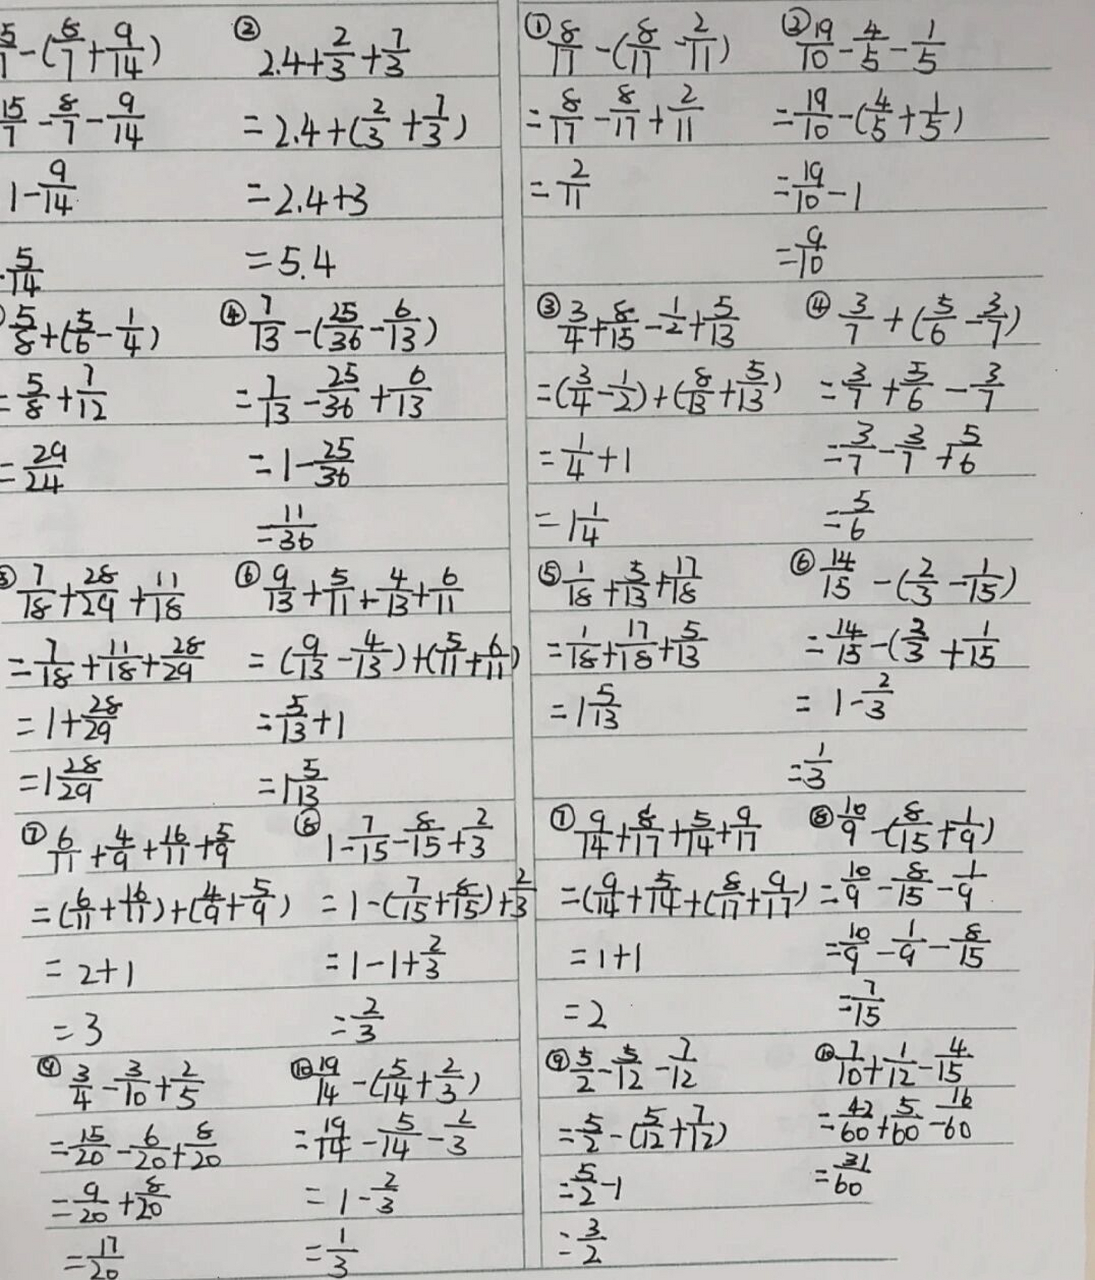 5/7-(8/7+9/14)
15/7-8/7-9/14
1-9/14
5/14
② 2.4+2/3+7/3
=2.4+(2/3+7/3)
=2.4+3
=5.4
5/8+(5/6-1/4)
=5/8+7/12
=29/24
④ 7/13-(25/36-6/13)
=7/13-25/36+6/13
=1-25/36
=11/36
⑤ 7/18+28/29+11/18
=7/18+11/18+28/29
=1+28/29
=1 28/29
⑥ 9/13+5/11+4/13+6/11
=(9/13-4/13)+(5/11+6/11)
=5/13+1
=1 5/13
⑦ 6/11+4/9+16/11+5/9
=(6/11+16/11)+(4/9+5/9)
=2+1
=3
⑧ 1-7/15-8/15+2/3
=1-(7/15+8/15)+2/3
=1-1+2/3
=2/3
⑨ 3/4-3/10+2/5
=15/20-6/20+8/20
=9/20+8/20
=17/20
⑩ 19/14-(5/14+2/3)
=19/14-5/14-2/3
=1-2/3
=1/3
① 8/17-(8/17-2/11)
=8/17-8/17+2/11
=2/11
② 19/10-4/5-1/5
=19/10-(4/5+1/5)
=19/10-1
=9/10
③ 3/4+8/15-1/2+5/13
=(3/4-1/2)+(8/13+5/13)
=1/4+1
=1 1/4
④ 3/7+(5/6-3/7)
=3/7+5/6-3/7
=3/7-3/7+5/6
=5/6
⑤ 1/18+5/13+17/18
=1/18+17/18+5/13
=1 5/13
⑥ 14/15-(2/3-1/15)
=14/15-(2/3+1/15
=1-2/3
=1/3
⑦ 9/14+8/17+5/14+9/17
=(9/14+5/14+(8/17+9/17)
=1+1
=2
⑧ 10/9-(8/15+1/9)
=10/9-8/15-1/9
=10/9-1/9-8/15
=7/15
⑨ 5/2-5/12-7/12
=5/2-(5/12+7/12)
=5/2-1
=3/2
⑩ 7/10+1/12-4/15
=42/60+5/60-16/60
=31/60